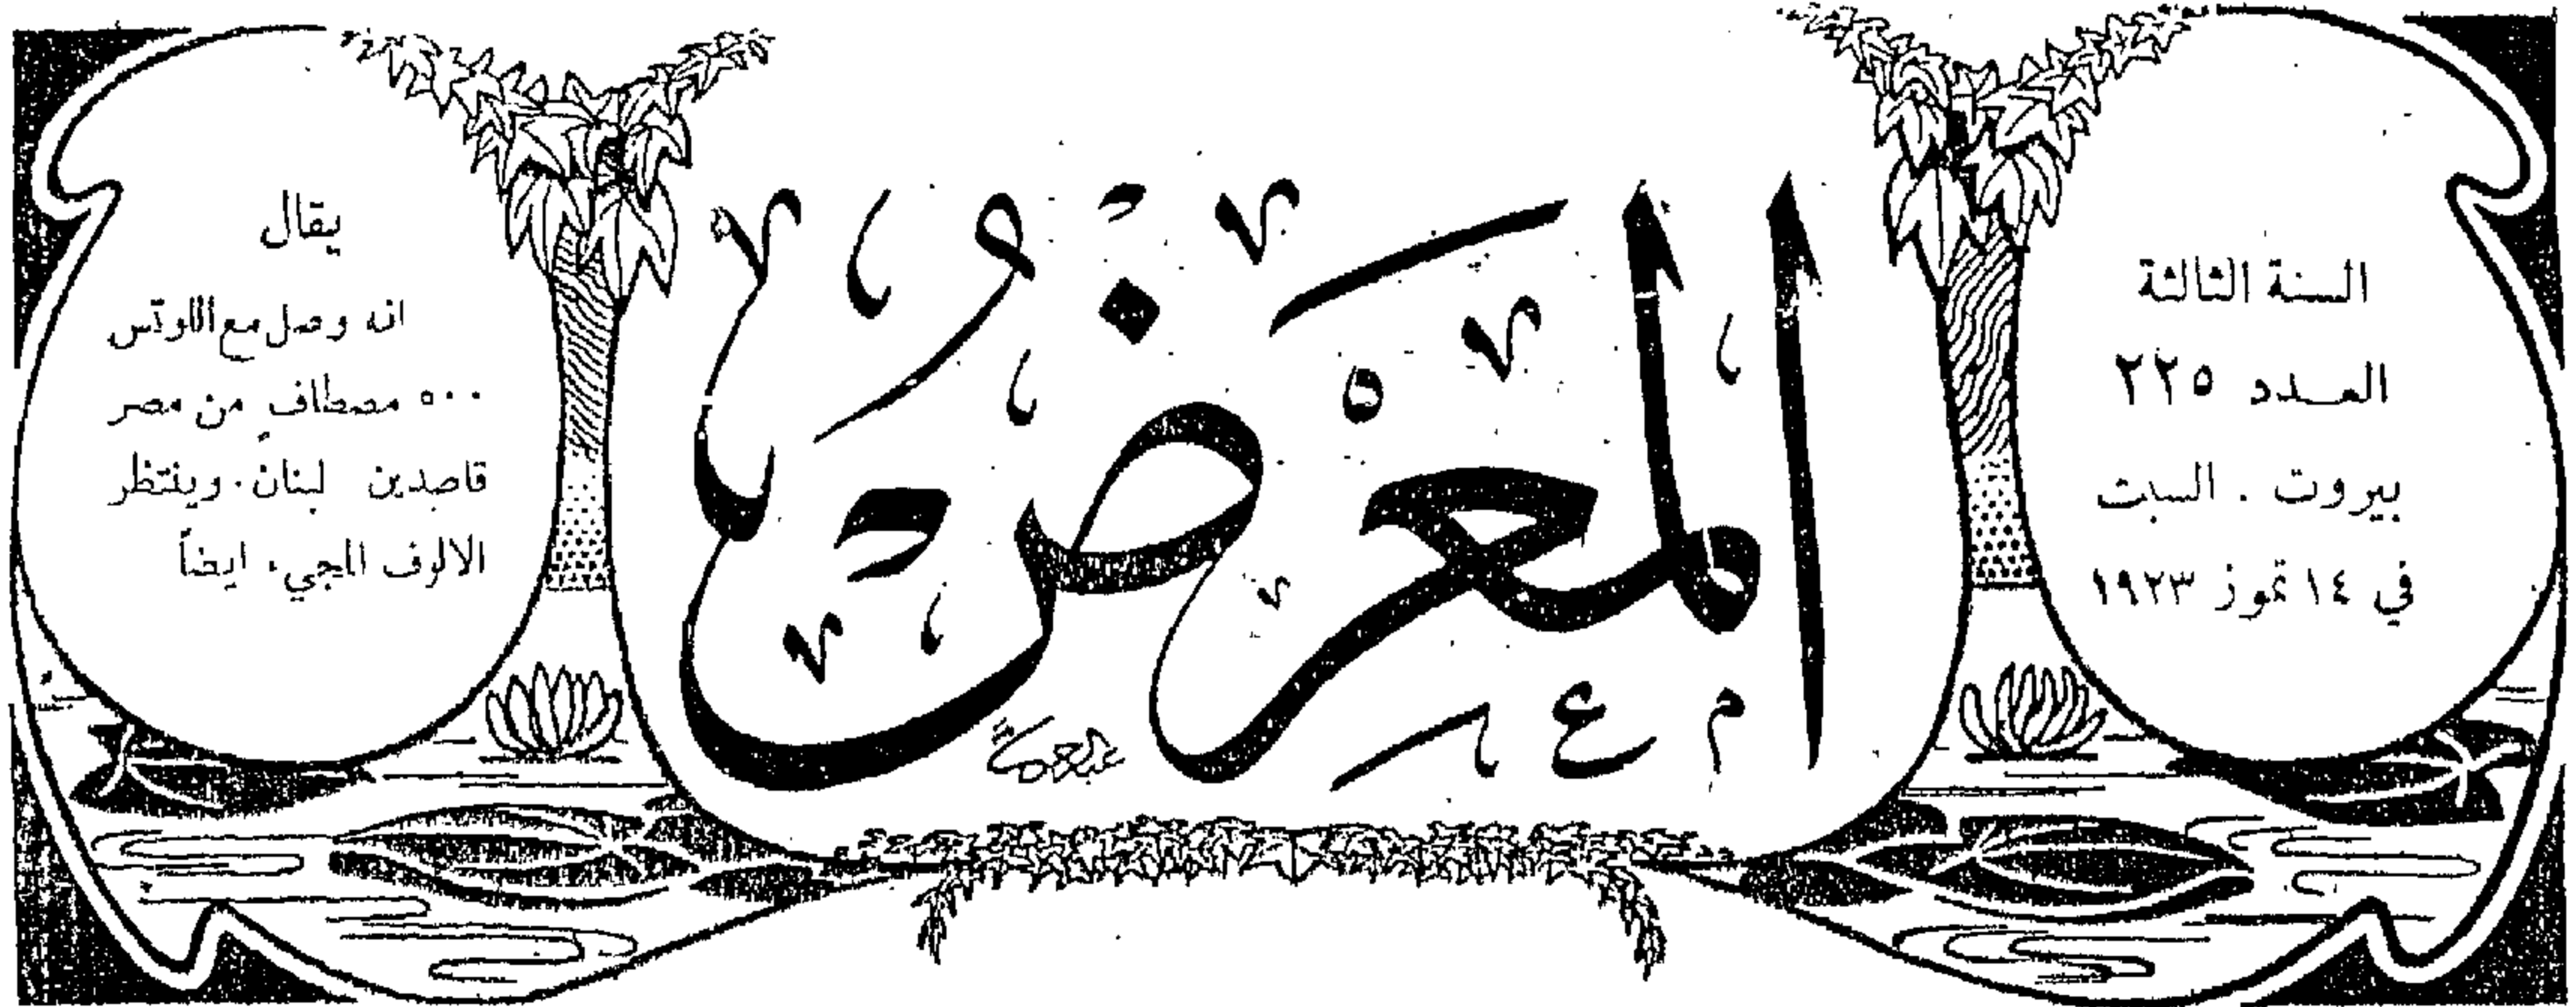 السنة الثالثة
العدد ٢٢٥
بيروت . السبت
في ١٤ تموز ١٩٢٣
المعرض
يقال
انه وصل مع اللوتس
٥٠٠ مصطاف من مصر
قاصدين لبنان . وينتظر
الالوف المجيء ايضاً